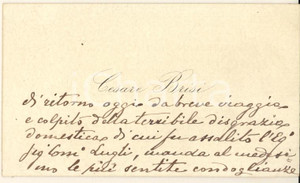 Cesare Brisi
di ritorno oggi da breve viaggio
e colpito della terribile disgrazia
domestica di cui fu assalito l'Eg.o
Sig. Com. Lugli, manda al medesi-
mo le più sentite condoglianze